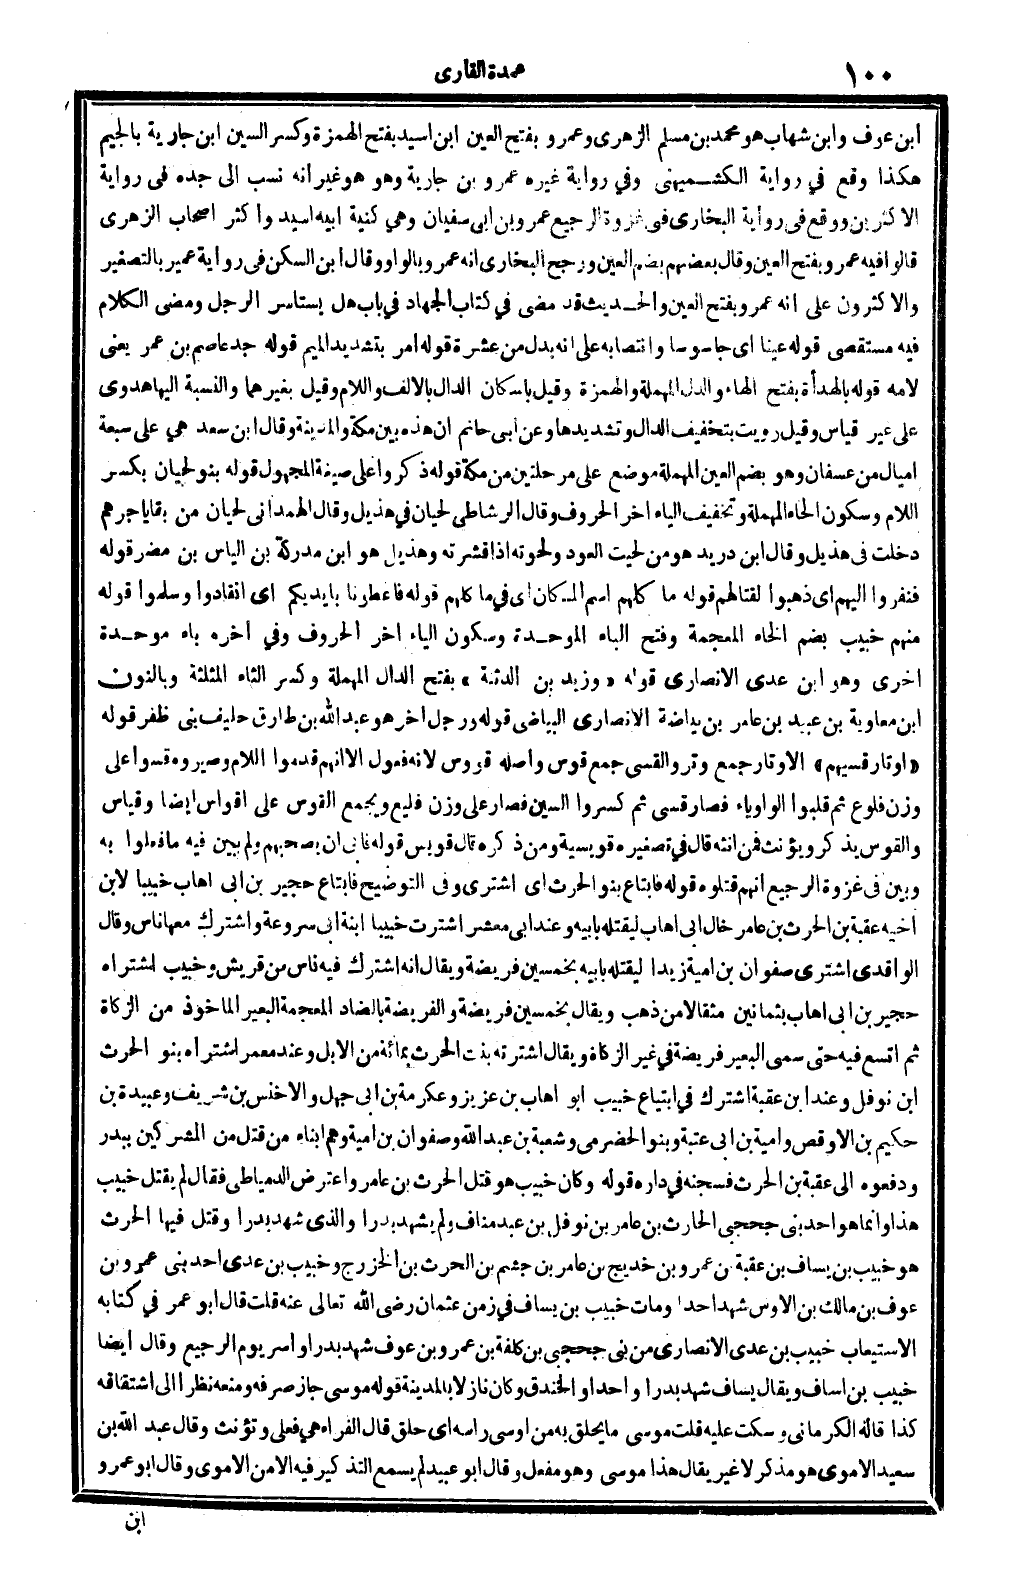 ١٠٠
عمدة القارى
ابن عوف وابن شهاب هو محمد بن مسلم الزهرى وعمرو بفتح العين ابن اسيد بفتح الهمزة وكسر السين ابن جارية بالجيم
هكذا وقع في رواية الكشميهنى وفي رواية غيره عمرو بن جارية وهو هو غير أنه نسب الى جده فى رواية
الاكثرين ووقع فى رواية البخارى فى غزوة الرجيع عمرو بن ابى سفيان وهي كنية ابيه اسيد واكثر اصحاب الزهرى
قالوا فيه عمرو بفتح العين وقال بعضهم بضم العين ورجح البخارى انه عمرو بالواو وقال ابن السكن فى رواية عمير بالتصغير
والاكثرون على انه عمرو بفتح العين والحديث قد مضى في كتاب الجهاد في باب هل يستاسر الرجل ومضى الكلام
فيه مستقصى قوله عينا اى جاسوسا وانتصابه على انه بدل من عشرة قوله أمر بتشديد الميم قوله جد عاصم بن عمر يعنى
لامه قوله بالهدأة بفتح الهاء والدال المهملة والهمزة وقيل باسكان الدال بالالف واللام وقيل بغيرهما والنسبة اليها هدوى
على غير قياس وقيل رويت بتخفيف الدال وتشديدها وعن أبى حاتم ان هذه بين مكة والمدينة وقال ابن سعد هي على سبعة
اميال من عسفان وهو بضم العين المهملة موضع على مرحلتين من مكة قوله ذكروا على صيغة المجهول قوله بنو لحيان بكسر
اللام وسكون الحاء المهملة وتخفيف الياء اخر الحروف وقال الرشاطى لحيان في هذيل وقال الهمدانى لحيان من بقايا جرهم
دخلت فى هذيل وقال ابن دريد هو من لحيت العود ولحوته اذا قشرته وهذيل هو ابن مدركة بن الياس بن مضر قوله
فنفروا اليهم اى ذهبوا لقتالهم قوله ما كلهم اسم المكان اى في ما كلهم قوله فاعطونا بايديكم اى انقادوا وسلموا قوله
منهم خبيب بضم الخاء المعجمة وفتح الباء الموحدة وسكون الياء اخر الحروف وفي أخره باء موحدة
اخرى وهو ابن عدى الانصارى قوله «وزيد بن الدثنة» بفتح الدال المهملة وكسر الثاء المثلثة وبالنون
ابن معاوية بن عبيد بن عامر بن بياضة الانصارى البياضى قوله ورجل اخر هو عبد الله بن طارق حليف بنى ظفر قوله
«اوتار قسيهم» الاوتار جمع وتر والقسى جمع قوس وأصله قووس لانه فعول الا انهم قدموا اللام وصيروه قسوا على
وزن فلوع ثم قلبوا الواو ياء فصار قسى ثم كسروا السين فصار على وزن فليع ويجمع القوس على اقواس ايضا وقياس
والقوس يذكر ويؤنث فمن انثه قال في تصغيره قويسية ومن ذكره قال قويس قوله فابى ان يصحبهم ولم يبين فيه ما فعلوا به
وبين فى غزوة الرجيع انهم قتلوه قوله فابتاع بنو الحرث اى اشترى وفى التوضيح فابتاع حجير بن ابى اهاب خبيبا لابن
أخيه عقبة بن الحرث بن عامر خال ابى اهاب ليقتله بابيه وعند ابى معشر اشترت خبيبا ابنة ابى سروعة واشترك معها ناس وقال
الواقدى اشترى صفوان بن امية زيدا ليقتله بابيه بخمسين فريضة ويقال انه اشترك فيه ناس من قريش وخبيب اشتراه
حجير بن ابى اهاب بثمانين مثقالا من ذهب ويقال بخمسين فريضة والفريضة بالضاد المعجمة البعير الماخوذ من الزكاة
ثم اتسع فيه حتى سمى البعير فريضة في غير الزكاة ويقال اشترته بنت الحرث بمائة من الابل وعند معمر اشتراه بنو الحرث
ابن نوفل وعند ابن عقبة اشترك في ابتياع خبيب ابو اهاب بن عزيز وعكرمة بن ابى جهل والاخنس بن شريف وعبيدة بن
حكيم بن الاوقص وامية بن ابى عتبة وبنو الحضرمى وشعبة بن عبد الله وصفوان بن امية وهم ابناء من قتل من المشركين ببدر
ودفعوه الى عقبة بن الحرث فسجنه في داره قوله وكان خبيب هو قتل الحرث بن عامر واعترض الدمياطى فقال لم يقتل خبيب
هذا وانما هو احد بنى جحجبى الحارث بن عامر بن نوفل بن عبد مناف ولم يشهد بدرا والذى شهد بدرا وقتل فيها الحرث
هو خبيب بن يساف بن عقبة بن عمرو بن خديج بن عامر بن جشم بن الحرث بن الخزرج وخبيب بن عدى احد بنى عمرو بن
عوف بن مالك بن الاوس شهد احدا ومات خبيب بن يساف في زمن عثمان رضى الله تعالى عنه قلت قال ابو عمر في كتابه
الاستيعاب خبيب بن عدى الانصارى من بنى جحجبى بن كلفة بن عمرو بن عوف شهد بدرا واسر يوم الرجيع وقال أيضا
خبيب بن اساف ويقال يساف شهد بدرا واحدا والخندق وكان نازلا بالمدينة قوله موسى جاز صرفه ومنعه نظرا الى اشتقاقه
كذا قاله الكرمانى وسكت عليه قلت موسى ما يحلق به من اوسى راسه اى حلق قال الفراء هي فعلى وتؤنث وقال عبد الله بن
سعيد الاموى هو مذكر لا غير يقال هذا موسى وهو مفعل وقال ابو عبيد لم يسمع التذكير فيه الا من الاموى وقال ابو عمرو
ابن